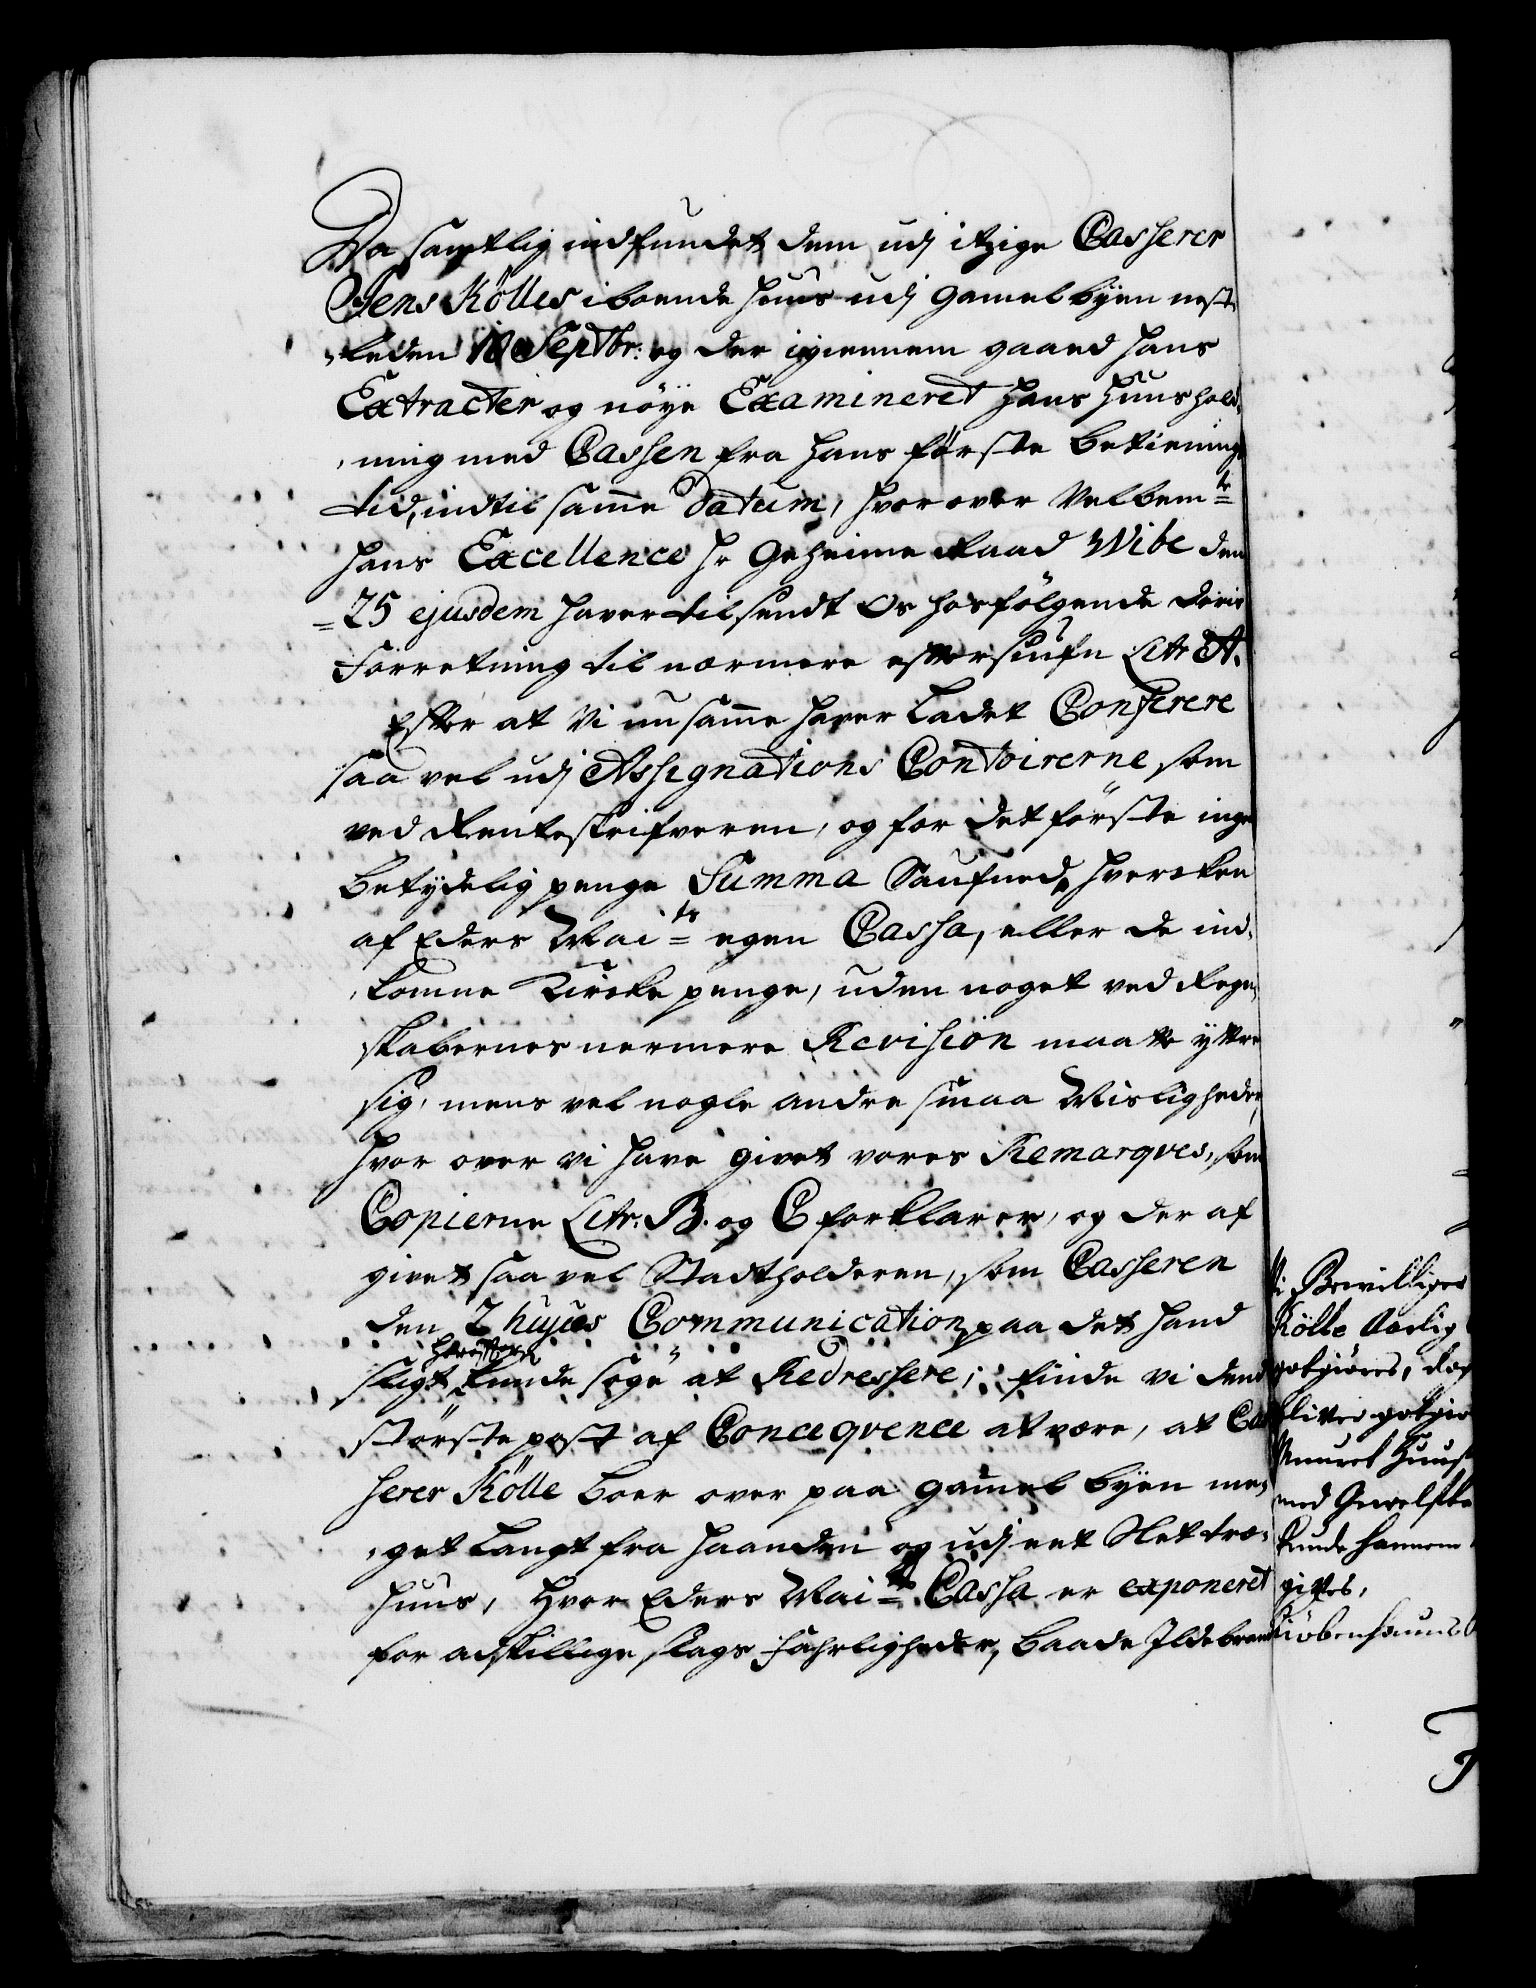 Da samptlig indfundet dem udj itzige Casserer
Jens Kölles iboende huus udj gamel byen nest
leden 18 Septbr: og der igiennem gaaed hans
Extracter og nöye Examineret hans huushold,
,ning med Cassen fra hans förste betienings
tid, indtil samme Datum, hvorover Velbem.te
hans Excellence Hr Geheime Raad Wibe den
25 ejusdem haver tilsendt Os hosfölgende deris
Forretning til nærmere eftersiufn Litr A.
Efter at Vi nu samme haver ladet Conferere
saa vel udj Assignations Contoirerne, som
ved Renteskrifveren, og for det förste ingen
betydelig penge Summa Saufnede hvercken
af Eders Mai.ts egen Cassa, eller de ind,
,komne Kircke penge, uden noget ved Regn,
skabernes nermere Revision maatte yttre
sig, mens vel nogle andre smaa Misligheder,
hvor over vi have givet vores Remarqves, som
Copierne Litr. B. og C forklarer, og der af
givet saa vel Stadtholderen, som Casseren
den 2 hujus Communication, paa det hand
herefter
sligt kunde söge at Redressere; finde vi dend
störste post af Conceqvence at være, at Cas
serer Kölle boer over paa gamel byen me,
,get langt fra haanden og udj eet Slet træ,
huus, Hvor Eders Mai.ts Cassa er exponeret
for adskillige slags Fahrligheder, baade Ildebrand
Vi Bewilliger
Kölle Aarlig
godtgiöres,
bliver godtgio
Muuret Huus
med Hwelfte
kunde hannem
gifves,
Kiöbenhaufn